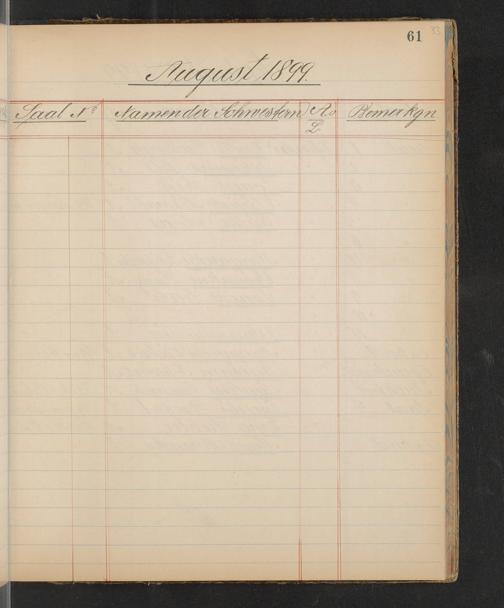 61
August 1899.
Saal No Namen der Schwestern Bemerkgn